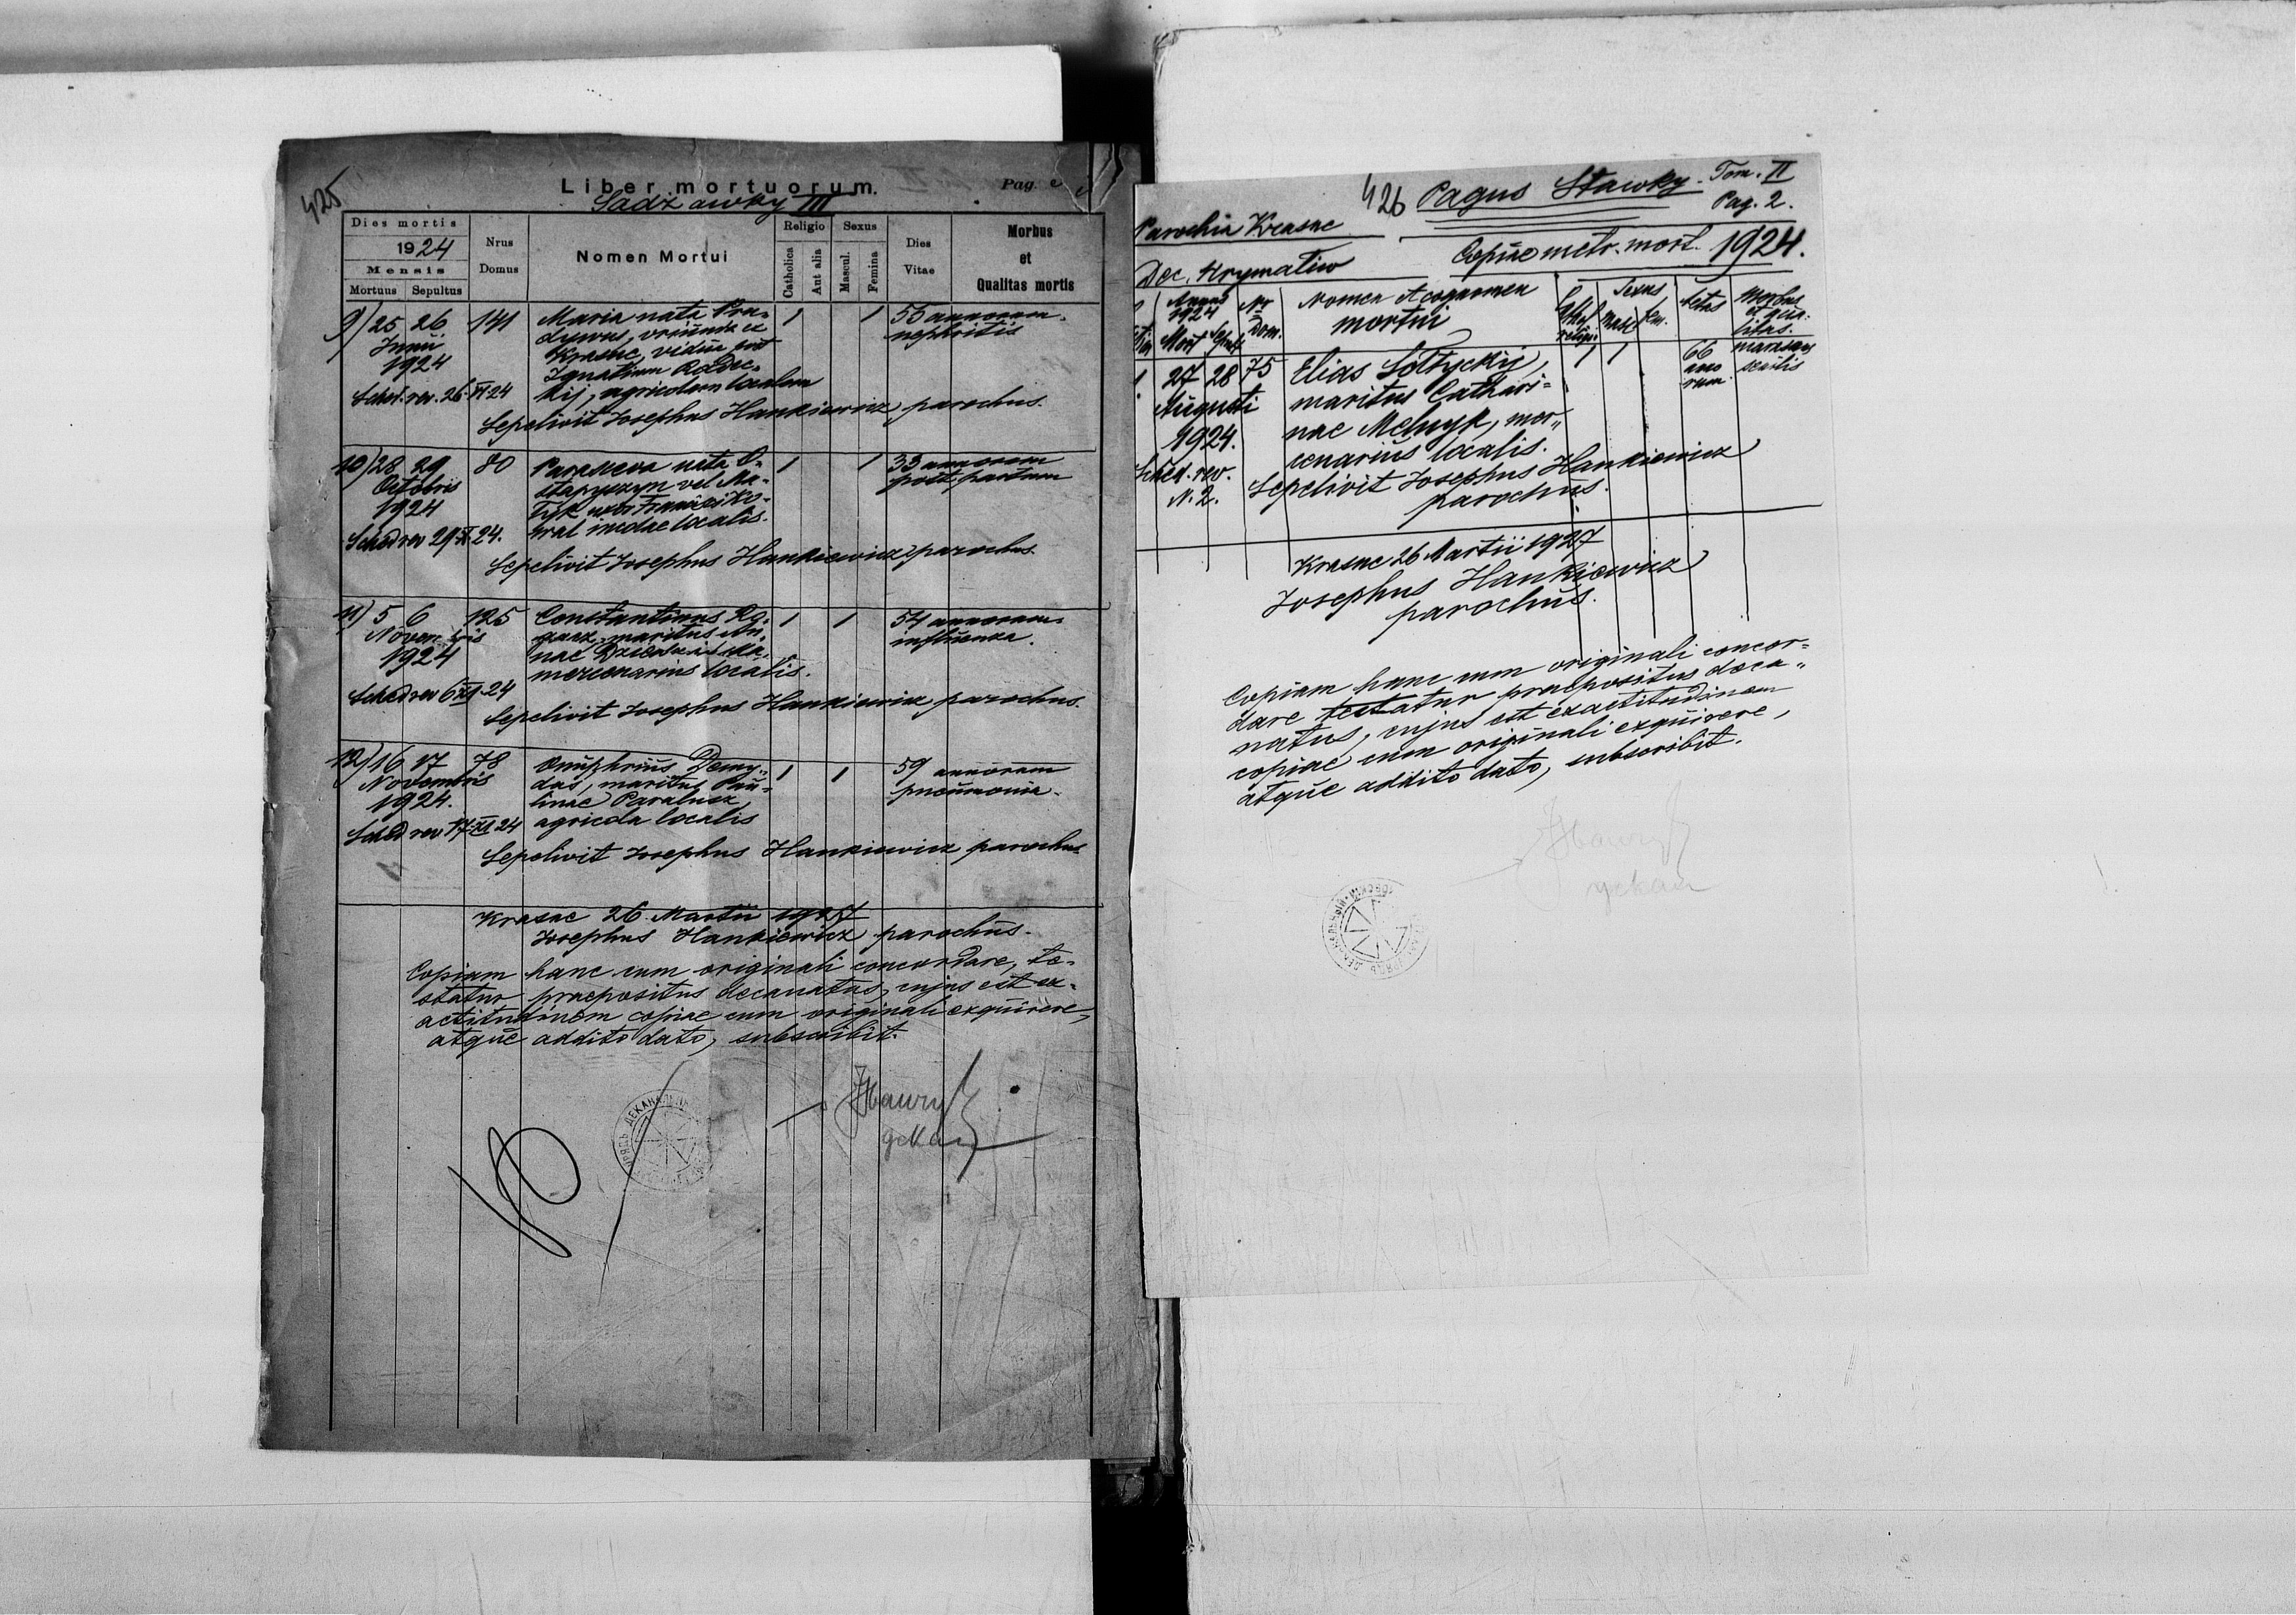 425
Liber mortuorum.
Pag.
Sadżawky III
Dies mortis
1924
Mensis
Mortuus Sepultus
Nrus
Domus
Nomen Mortui
Religio
Catholica
Aut alia
Sexus
Mascul.
Femina
Dies
Vitae
Morbus
et
Qualitas mortis
9) 25 26 141 Maria nata Pra- 1 1 55 annorum
Junii dywus, oriunda ex nephritis
1924 Krasne, vidua post
Ignatium Radec-
Sched. rev. 26 VI 24 kij, agricolam localem
Sepelivit Josephus Hankiewicz, parochus.
10) 28 29 80 Parasceva nata O- 1 1 33 annorum
Octobris stapyszyn vel Ma- post partum
1924 tyk uxor Francisci Ko-
Sched rev 29 X 24. wal localis.
Sepelivit Josephus Hankiewicz parochus.
11) 5 6 125 Constantinus 1 1 54 annorum
Novembris maritus An- influenza.
1924 nae
mercenarius localis.
Sched rev 6 XI 24
Sepelivit Josephus Hankiewicz parochus.
12) 16 17 78 Onuphrius Demy- 1 1 59 annorum
Novembris das, maritus Pau- pneumonia.
1924. linae Paraluszk
Sched rev 17 XI 24 agricola localis
Sepelivit Josephus Hankiewicz parochus
Krasne 26 Martii 1927
Josephus Hankiewicz parochus.
Copiam hanc cum originali concordare, te-
statur praepositus decanatus, cujus est ex-
actitudinem copiae cum originali exquirere,
atque addito dato, subscribit.
декан
426 Pagus Stawky. Tom. II
Pag. 2.
Parochia Krasne
Copiae metr. mort. 1924.
Dec. Krymaliw
Annus
1924
Mort Sepult
Nr
Dom.
Nomen et cognomen
mortui
Cathol
relig.
Sexus
Masc fem.
Aetas
Morbus
et qua-
litas.
1 27 28 75 Elias Soltyckij, 1 1 66 marasmus
Augusti maritus Cathari- anno senilis
1924. nae Melnyk, mer- rum
Sched. rev. cenarius localis.
N. 2. Sepelivit Josephus Hankiewicz
parochus.
Krasne 26 Martii 1927
Josephus Hankiewicz
parochus.
Copiam hanc cum originali concor-
dare testatur praepositus deca-
natus, cujus est exactitudinem
copiae cum originali exquirere,
atque addito dato, subscribit.
декан